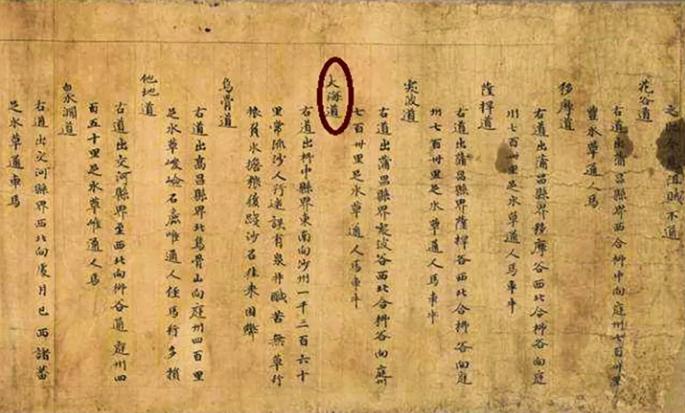 阻賊不通
花谷道
右道出蒲昌縣界西合柳中向庭州七百卅里
豐水草通人馬
移摩道
右道出蒲昌縣界移摩谷西北合柳谷向庭
州七百卅里足水草通人馬車牛
薩捍道
右道出蒲昌縣界薩捍谷西北合柳谷向庭
州七百卅里足水草通人馬車牛
突波道
右道出蒲昌縣界突波谷西北合柳谷向庭州
七百卅里足水草通人馬車牛
大海道
右道出柳中縣界東南向沙州一千三百六十
里常流沙人行迷誤有泉井醎苦無草行
旅負水擔粮履踐沙石往來困弊
烏骨道
右道出高昌縣界北烏骨山向庭州四百里
足水草峻嶮石麁唯通人徑馬行多損
他地道
右道出交河縣界至西北向柳谷通庭州四
百五十里足水草唯通人馬
白水澗道
右道出交河縣界西北向處月已西諸蕃
足水草通車馬